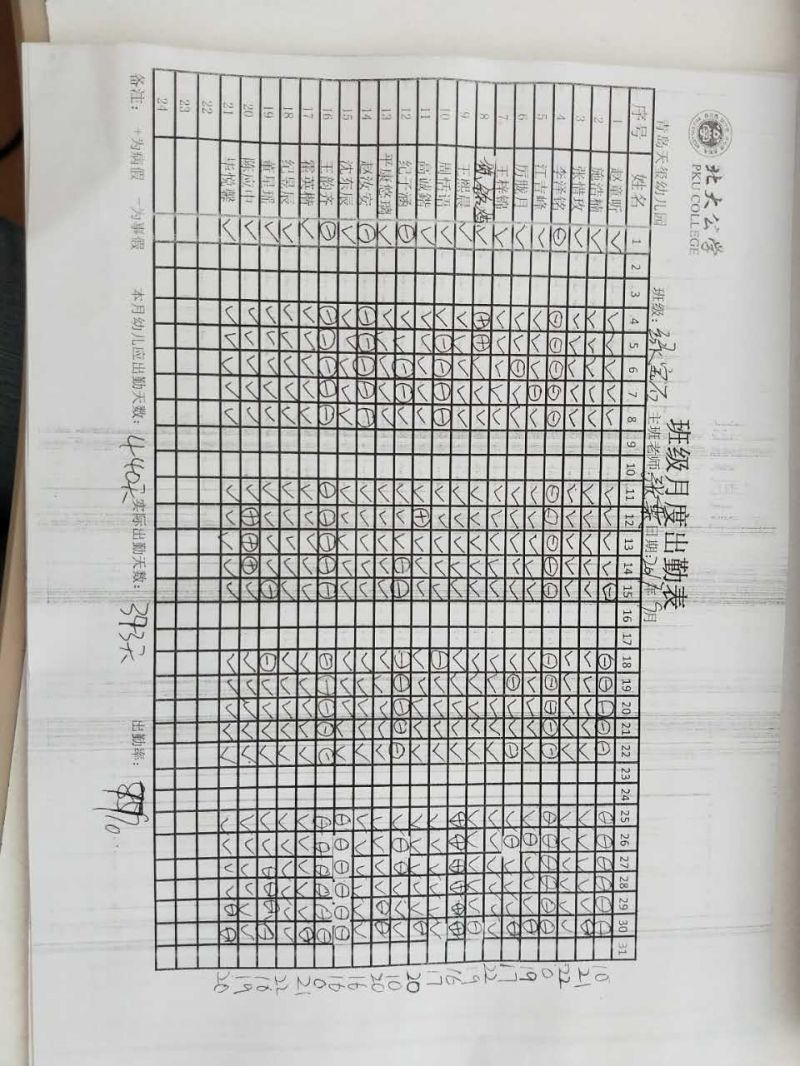 北大公学
PKU COLLEGE
班级月度出勤表
青岛天玺幼儿园 班级: 主班老师: 日期: 年9月
序号 姓名 1 2 3 4 5 6 7 8 9 10 11 12 13 14 15 16 17 18 19 20 21 22 23 24 25 26 27 28 29 30 31
1 赵童昕 10
2 施浩楠 21
3 张惜玫 22
4 李泽铭 0
5 江吉峰 19
6 厉骰月 17
7 王梓锦 22
8 19
9 王熙晨 16
10 周恬语 17
11 高诚鍇 20
12 纪子涵 10
13 平康悠璃 20
14 赵汝安 16
15 沈东辰 16
16 王韵齐 0
17 霍英楷 21
18 纪昱辰 22
19 董星瑶 18
20 陈应中 19
21 毕悦馨 20
22
23
24
备注: +为病假 -为事假 本月幼儿应出勤天数: 440天 实际出勤天数: 393天 出勤率: 89%